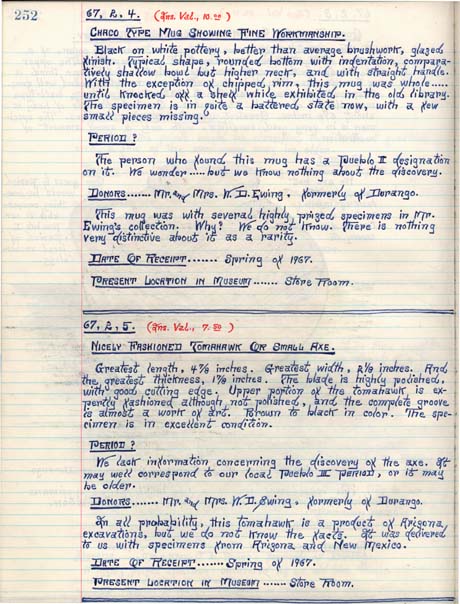 252
67. 2. 4. (Ins. Val., 10.00)
Chaco Type Mug Showing Fine Workmanship.
Black on white pottery, better than average brushwork, glazed
finish. Typical shape, rounded bottom with indentation, compara-
tively shallow bowl but higher neck, and with straight handle.
With the exception of chipped rim, this mug was whole.....
until knocked off a shelf while exhibited in the old library.
The specimen is in quite a battered state now, with a few
small pieces missing.
Period?
The person who found this mug has a Pueblo II designation
on it. We wonder.....but we know nothing about the discovery.
Donors...... Mr. and Mrs. W. D. Ewing, formerly of Durango.
This mug was with several highly prized specimens in Mr.
Ewing's collection. Why? We do not know. There is nothing
very distinctive about it as a rarity.
Date Of Receipt....... Spring of 1967.
Present Location in Museum...... Store Room.
67. 2. 5. (Ins. Val., 7.50)
Nicely Fashioned Tomahawk Or Small Axe.
Greatest length, 4 7/8 inches. Greatest width, 2 1/8 inches. And
the greatest thickness, 1 7/8 inches. The blade is highly polished,
with good cutting edge. Upper portion of the tomahawk is ex-
pertly fashioned although not polished, and the complete groove
is almost a work of art. Brown to black in color. The spe-
cimen is in excellent condition.
Period?
We lack information concerning the discovery of the axe. It
may well correspond to our local Pueblo III period, or it may
be older.
Donors....... Mr. and Mrs. W. D. Ewing, formerly of Durango.
In all probability, this tomahawk is a product of Arizona
excavations, but we do not know the facts. It was delivered
to us with specimens from Arizona and New Mexico.
Date Of Receipt ....... Spring of 1967.
Present Location in Museum...... Store Room.